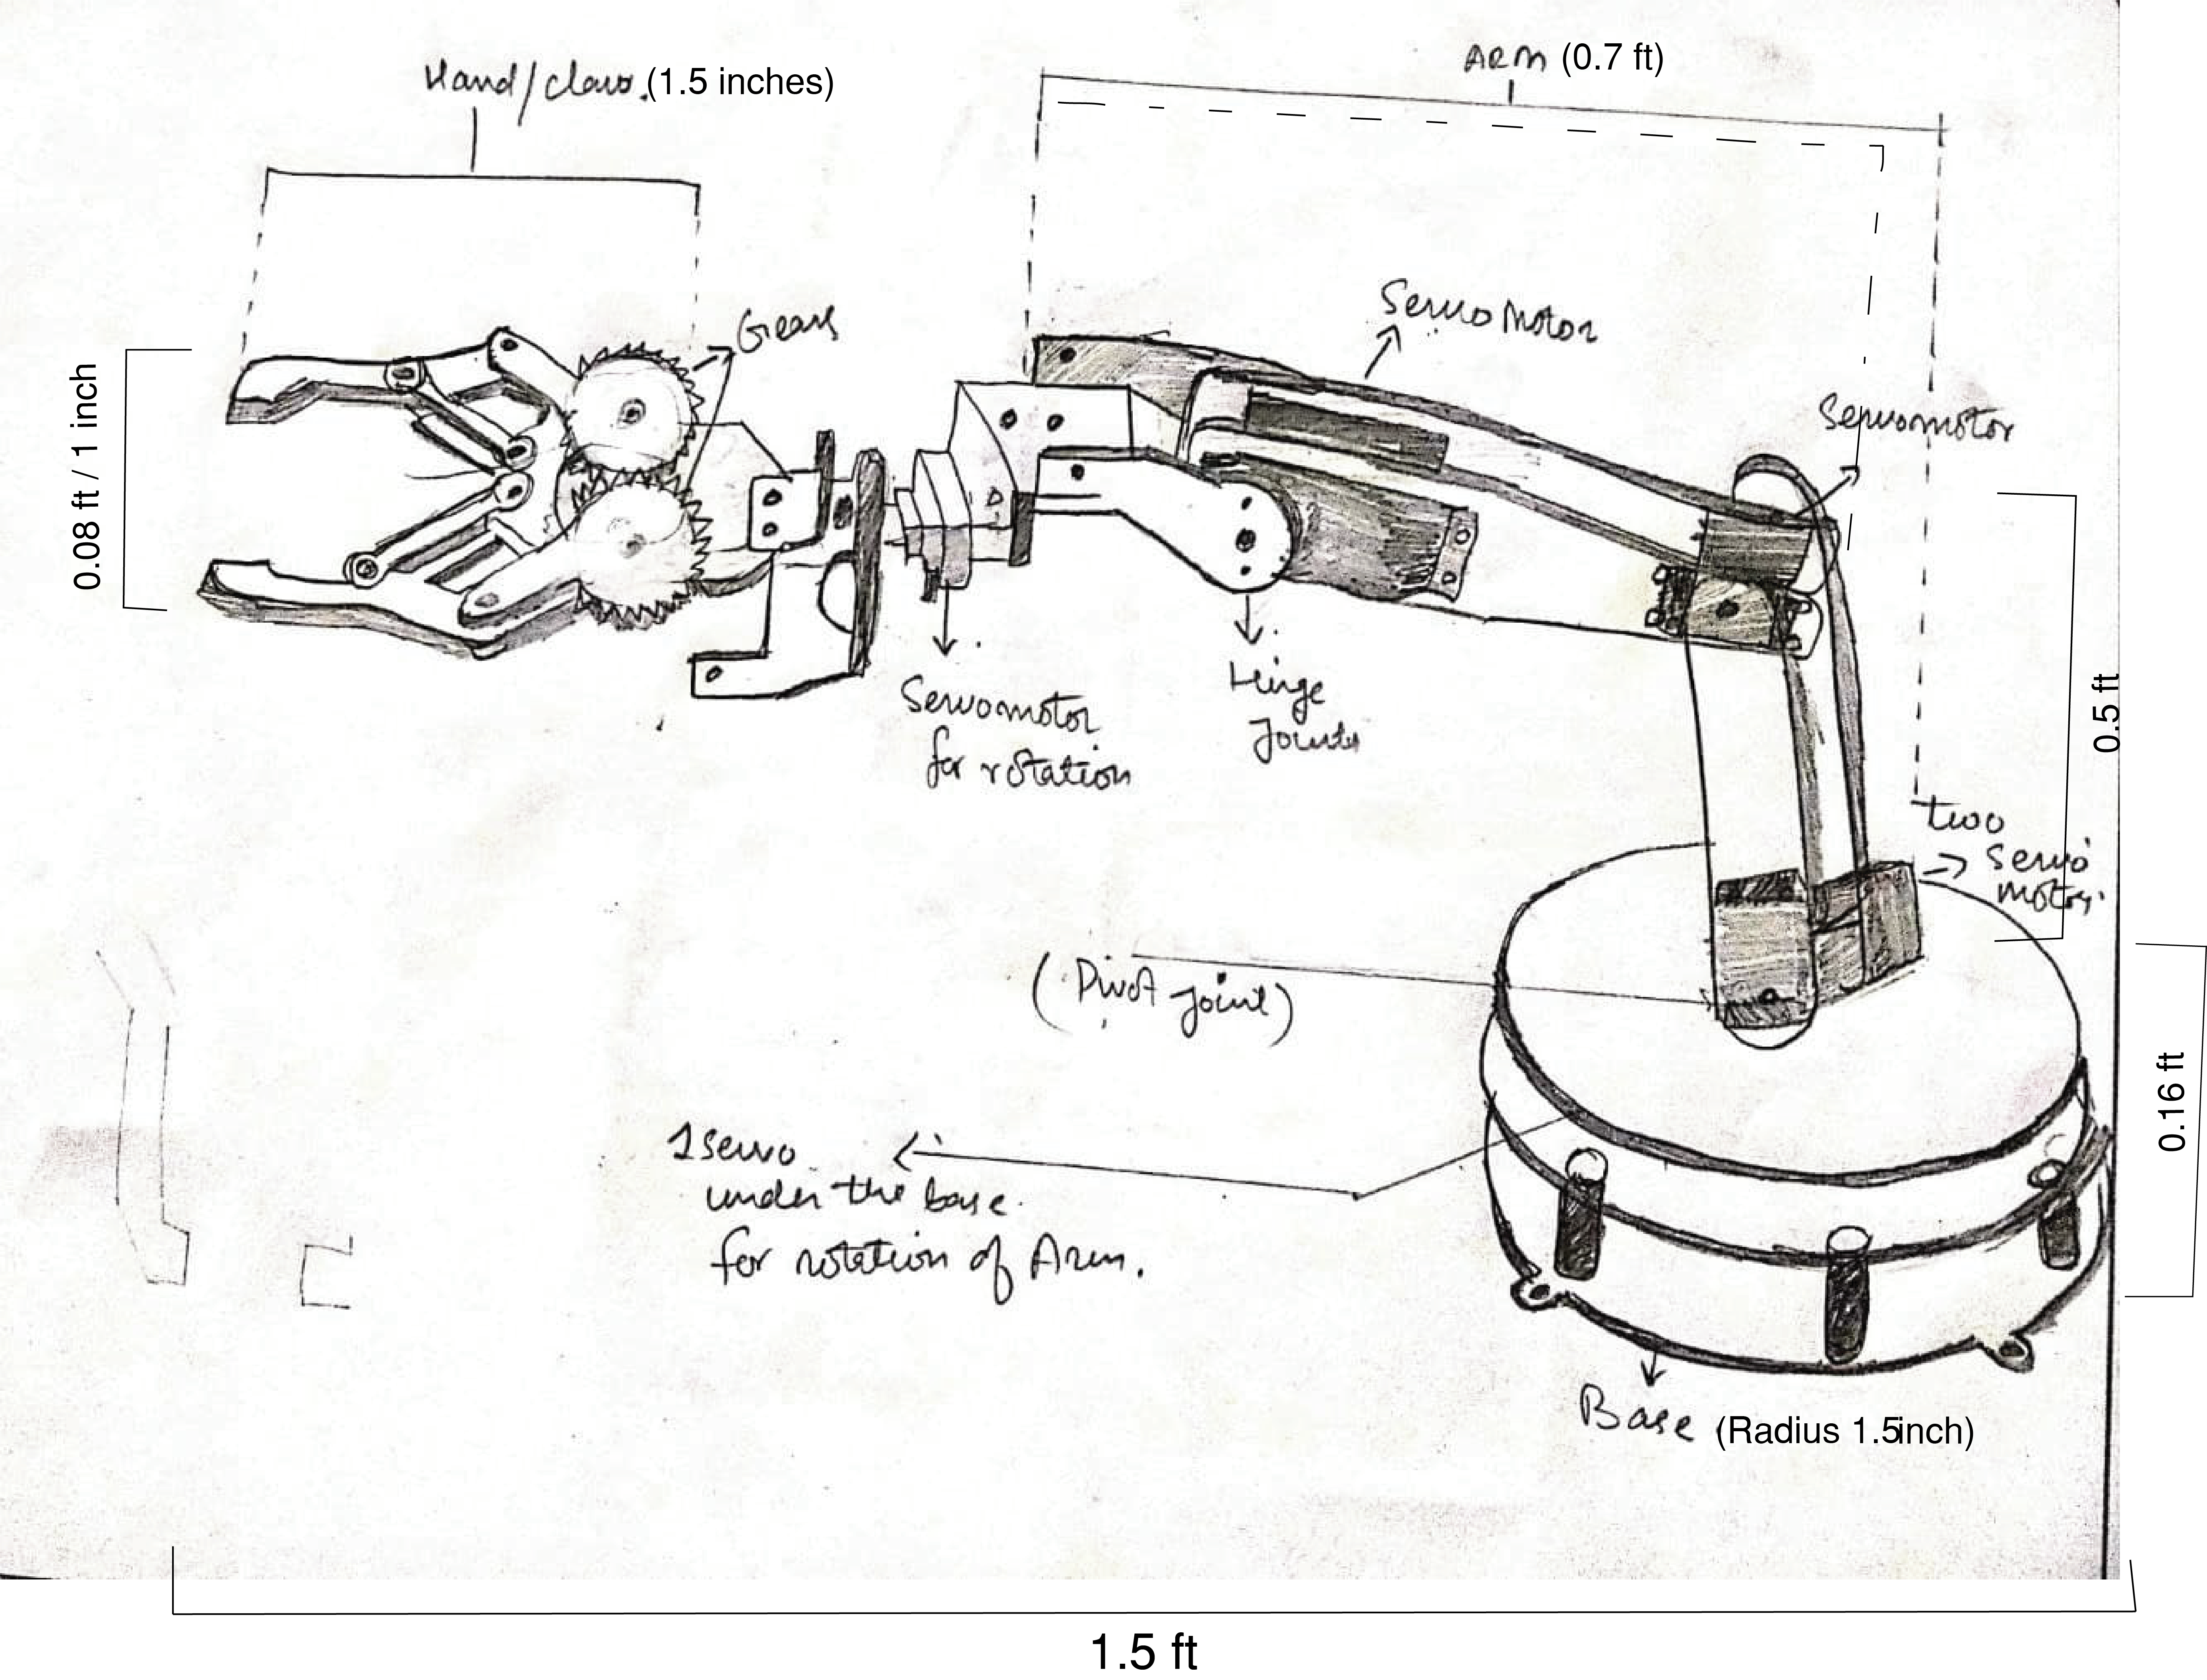 Hand/claw. (1.5 inches)
ARM (0.7 ft)
Gears
Servo Motor
Servomotor
0.08 ft / 1 inch
0.5 ft
Servomotor
for rotation
Hinge
Joints
two
servo
motors.
(Pivot joint)
0.16 ft
1 servo
under the base.
for rotation of Arm.
Base (Radius 1.5inch)
1.5 ft